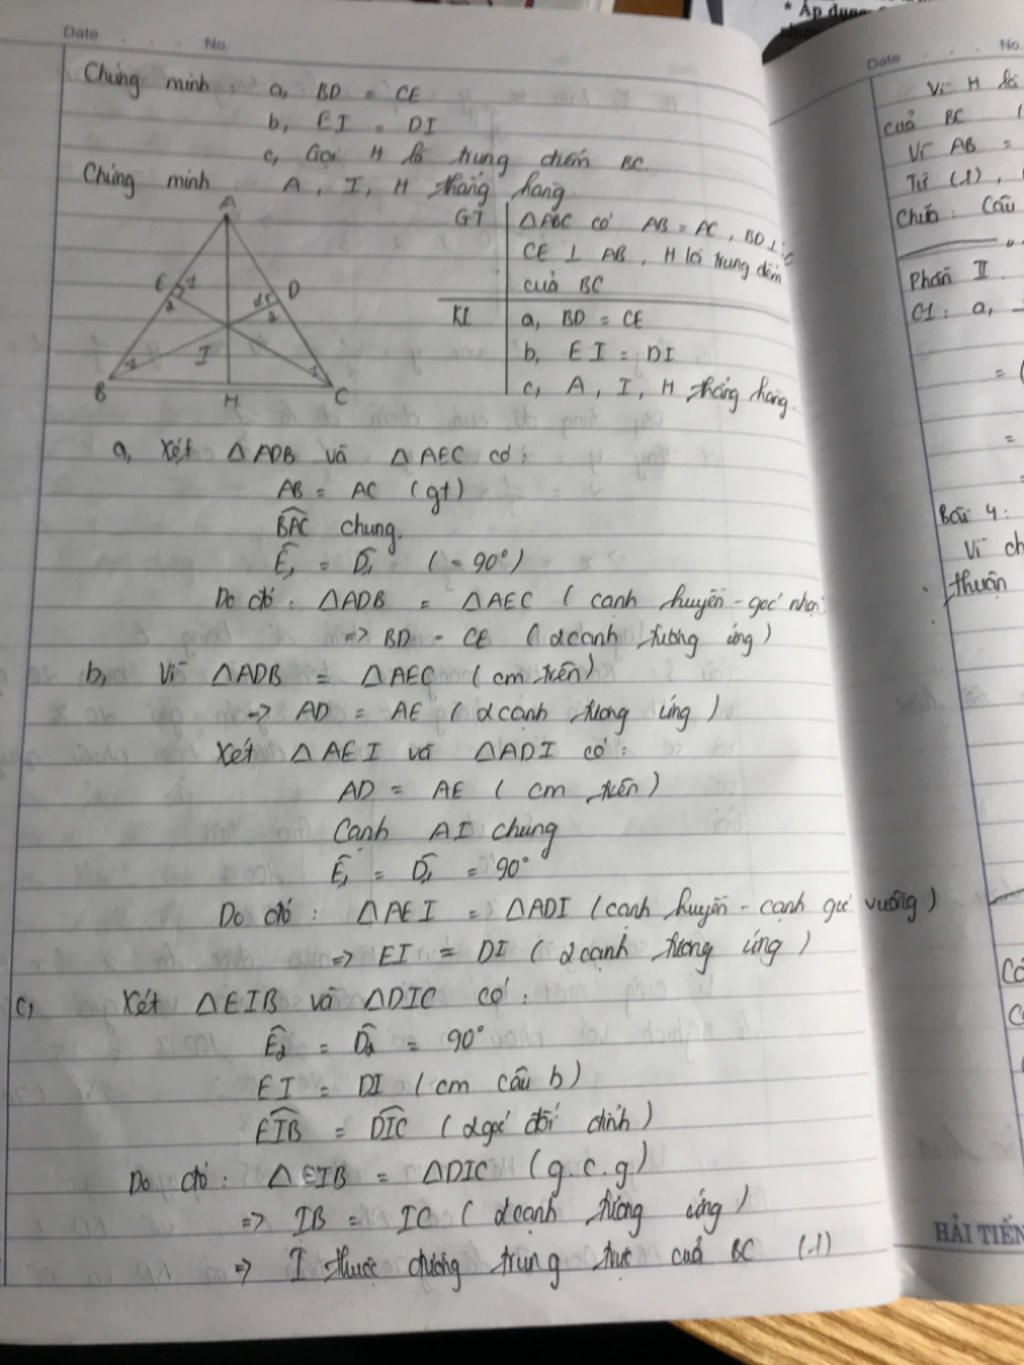 Date . . . No.
Chứng minh : a, BD = CE
b, EI = DI
c, Gọi H là trung điểm BC
Chứng minh A, I, H thẳng hàng
A
E 1
2
1 D
2
I
B 1
1 C
H
GT ΔABC có AB = AC, BD ⊥
CE ⊥ AB, H là trung điểm
của BC
KL a, BD = CE
b, EI = DI
c, A, I, H thẳng hàng.
a, Xét ΔADB và ΔAEC có:
AB = AC (gt)
B̂AC chung.
Ê₁ = D̂₁ (= 90°)
Do đó : ΔADB = ΔAEC (cạnh huyền - góc nhọn
=> BD = CE (2 cạnh tương ứng)
b, Vì ΔADB = ΔAEC (cm trên)
=> AD = AE (2 cạnh tương ứng)
Xét ΔAEI và ΔADI có :
AD = AE (cm trên)
Cạnh AI chung
Ê₁ = D̂₁ = 90°
Do đó : ΔAEI = ΔADI (cạnh huyền - cạnh góc vuông)
=> EI = DI (2 cạnh tương ứng)
c, Xét ΔEIB và ΔDIC có :
Ê₂ = D̂₂ = 90°
EI = DI (cm câu b)
ÊIB = D̂IC (2 góc đối đỉnh)
Do đó : ΔEIB = ΔDIC (g.c.g)
=> IB = IC (2 cạnh tương ứng)
=> I thuộc đường trung trực của BC (1)
* Áp dụng
Date . . . No.
Vì H là
của BC
Vì AB =
Từ (1),
Chữa : Câu
Phần II
C1 : a,
= (
=
Bài 4 :
Vì ch
thuận
HẢI TIẾN